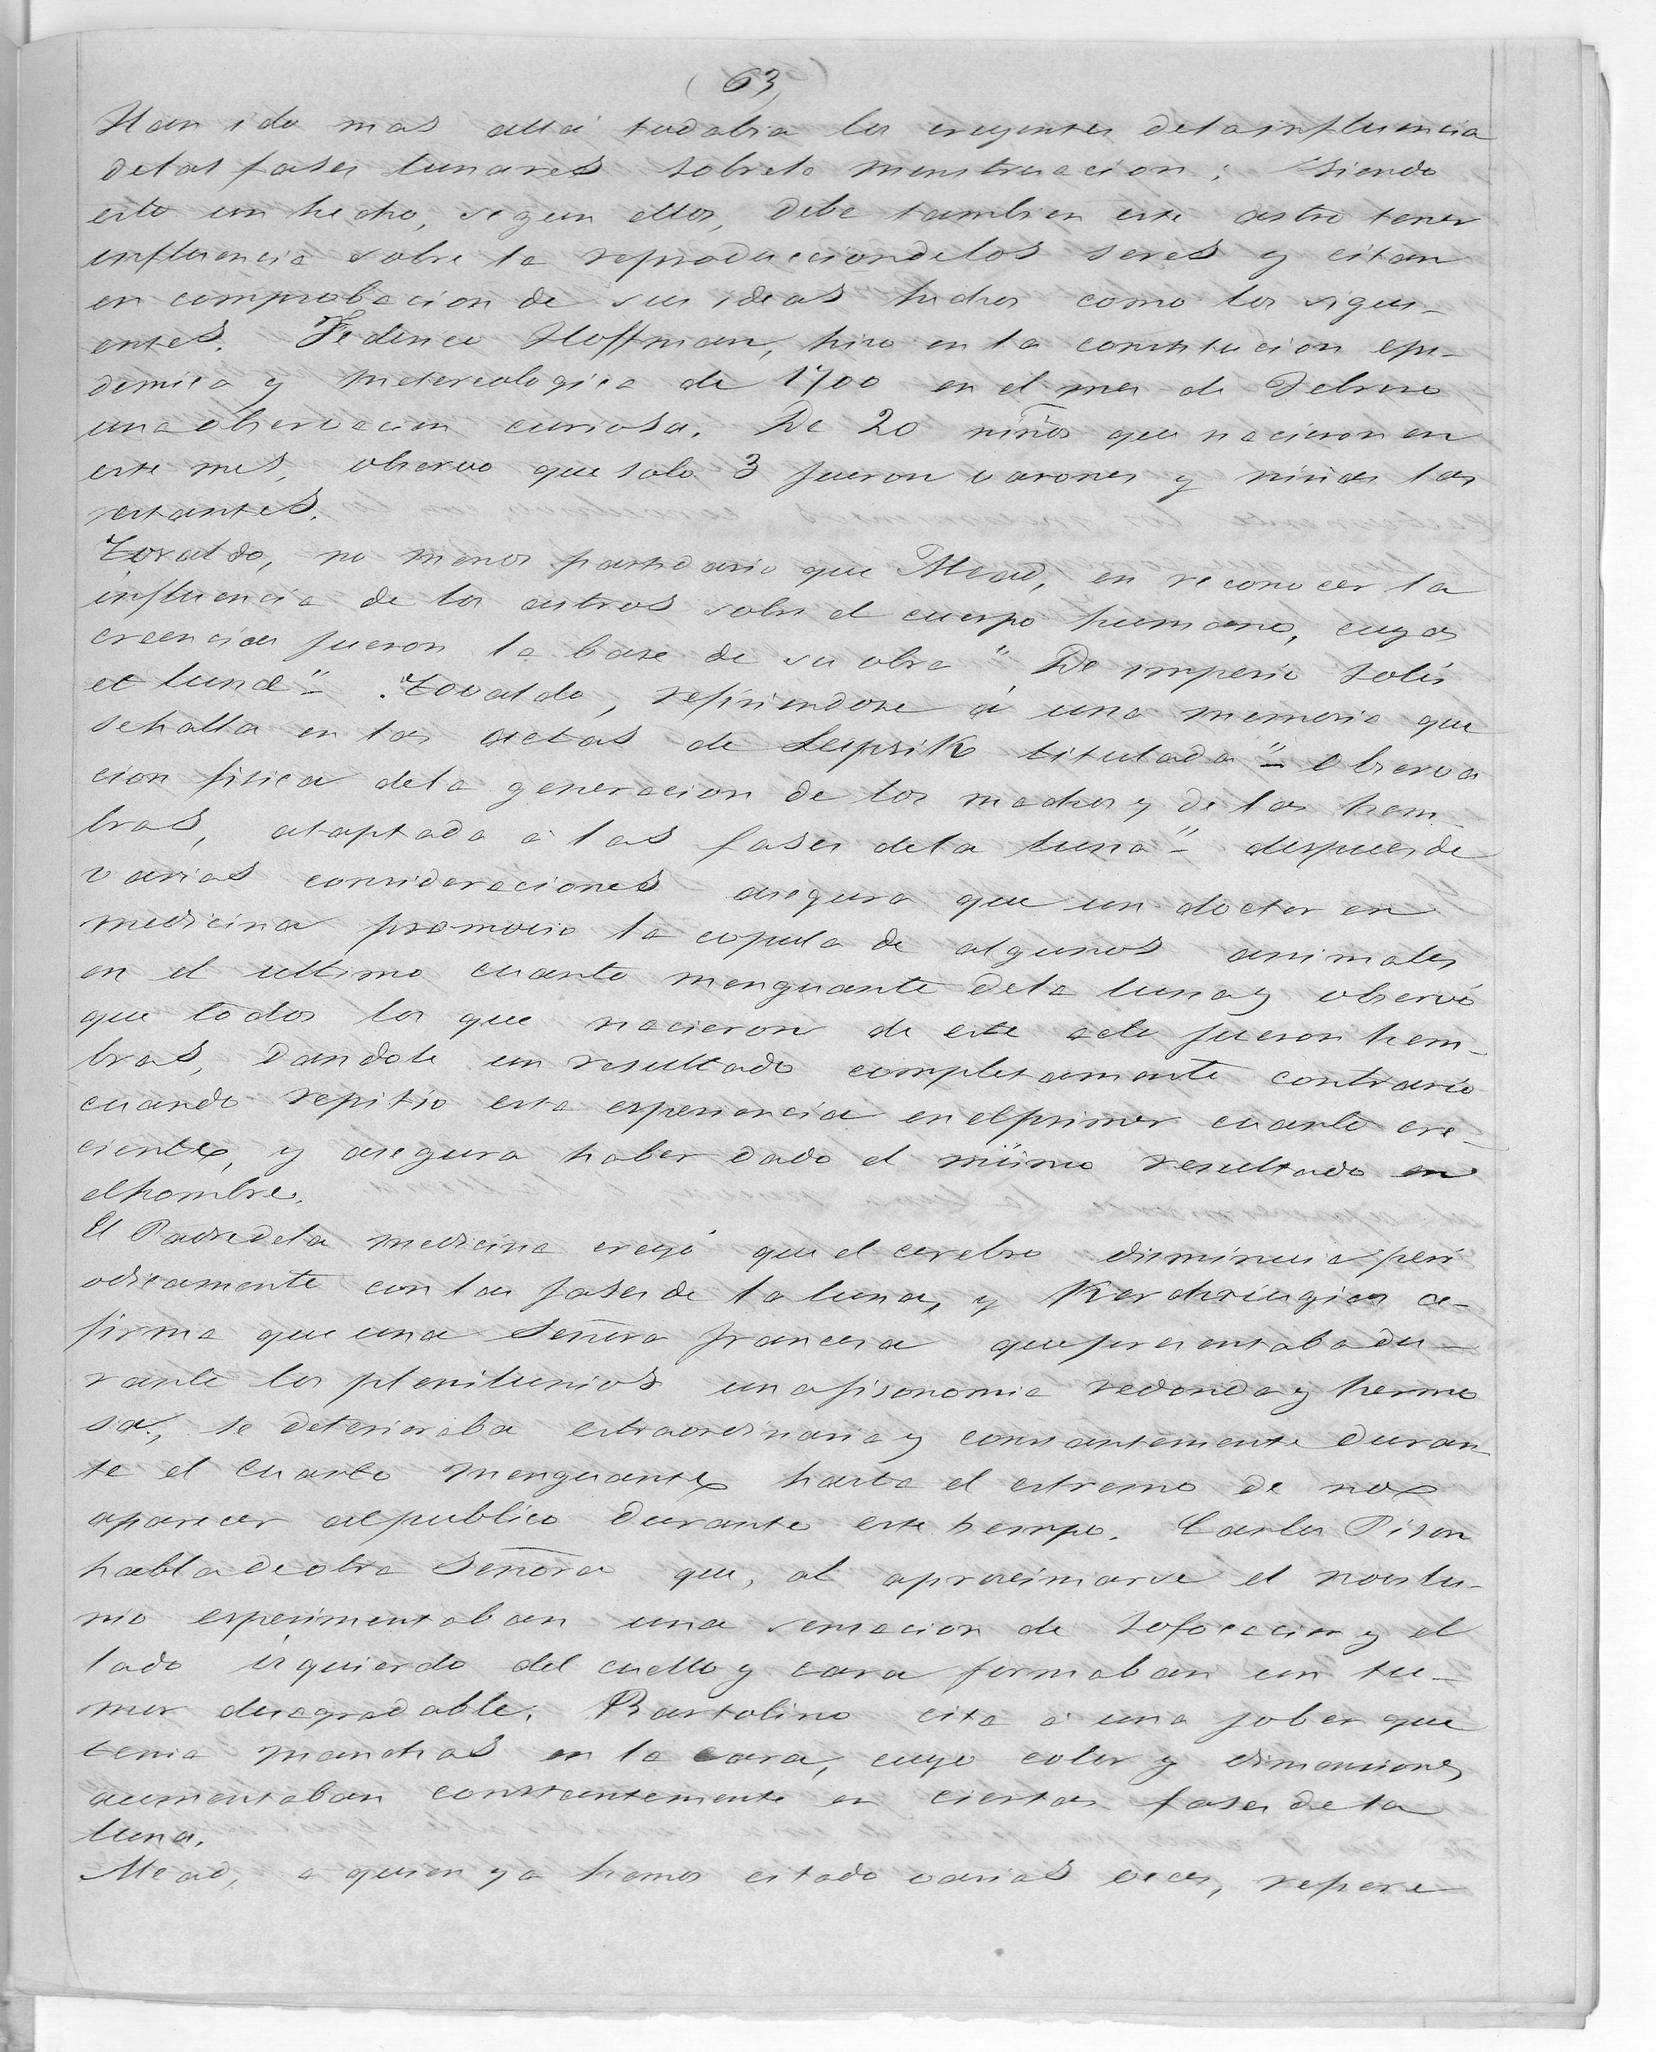 (63)
Han ido mas allá todabia los creyentes delainfluencia
delas fases lunares sobrela menstruacion: siendo
esto un hecho, segun ellos, debe tambien este astro tener
influencia sobre la reproducciondelos seres y citan
en comprobacion de sus ideas hechos como los sigui-
entes. Federico Hoffman, hizo en la constitucion epi-
demica y metereologica de 1700 en el mes de Febrero
una observacion curiosa. De 20 niños que nacieron en
este mes, observo que solo 3 fueron varones y niñas las
restantes.
Tovaldo, no menos partidario que Mead, en reconocer la
influencia de los astros sobre el cuerpo humano, cuyas
creencias fueron la base de su obra " De imperio solis
et lunæ"- Tovaldo, refiriendose á una memoria que
sehalla en las actas de Leipsik titulada "- Observa
cion fisica dela generacion de los machos y de las hem-
bras, ataptada á las fases dela luna"- despuesde
varias consideraciones asegura que un doctor en
medicina promovio la copula de algunos animales
en el ultimo cuarto menguante dela luna y observó
que todos los que nacieron de este acto fueron hem-
bras, dandole un resultado completamente contrario
cuando repitio esta esperiencia enelprimer cuarto cre-
ciente, y asegura haber dado el mismo resultado en
elhombre.
El Padredela medicina creyó que el cerebro disminuia peri
odicamente con las fases de la luna, y a-
firma que una Señora francesa quepresentaba du-
rante los plenilunios unafisonomia redonda y hermo
sa, se deterioraba estraordinaria y constantemente duran-
te el cuarto menguante hasta el estremo de no
aparecer alpublico durante este tiempo. Carlos Pison
habla deotra Señora que, al aproximarse el novilu-
nio esperimentaban una sensacion de sofocacion y el
lado izquierdo del cuello y cara formaban un tu-
mor desagradable. Bartolino cita á una joben que
tenia manchas en la cara, cuyo color y dimensiones
aumentaban constantemente en ciertas fases dela
luna.
Mead, a quien ya hemos citado varias veces, refiere